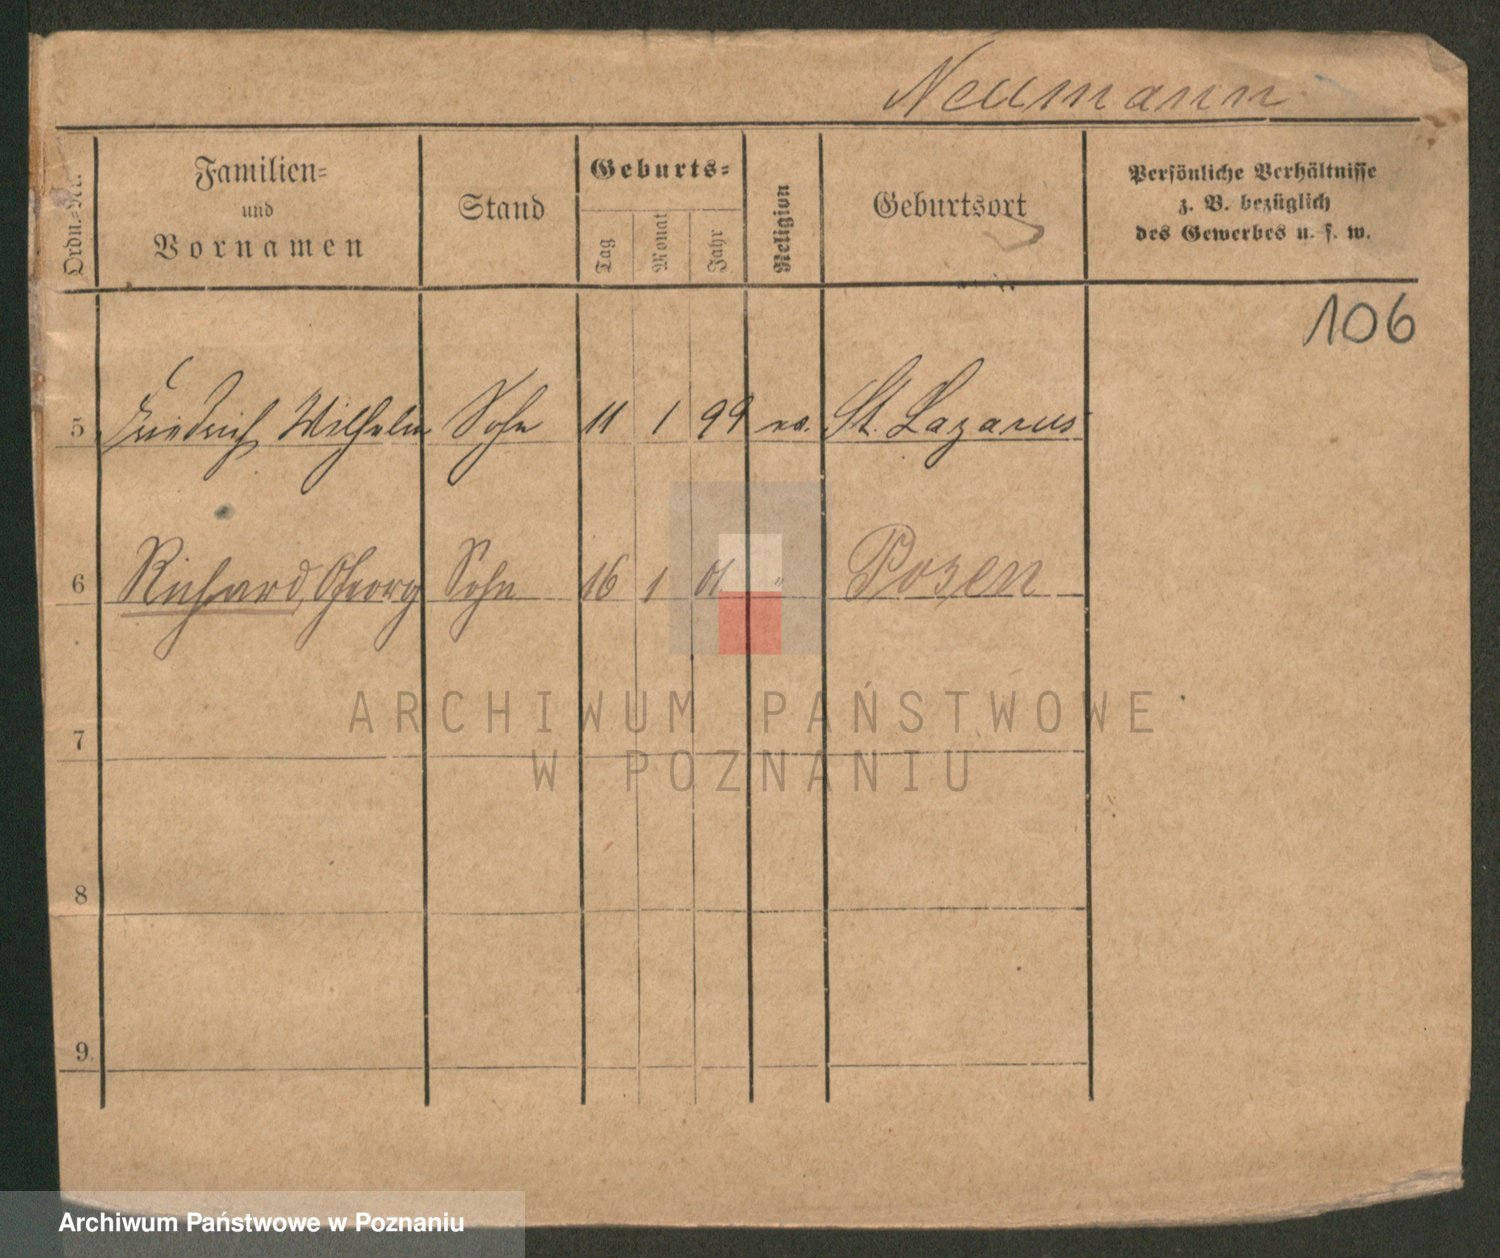 Neumann
Ordn.-Nr.
Familien-
und
Vornamen
Stand
Geburts-
Tag
Monat
Jahr
Religion
Geburtsort
Persönliche Verhältnisse
z. B. bezüglich
des Gewerbes u. s. w.
106
5 Friedrich Wilhelm Sohn 11 1 99 ev. St. Lazarus
6 Richard, Georg Sohn 16 1 01 " Posen
7
8
9
ARCHIWUM PAŃSTWOWE
W POZNANIU
Archiwum Państwowe w Poznaniu